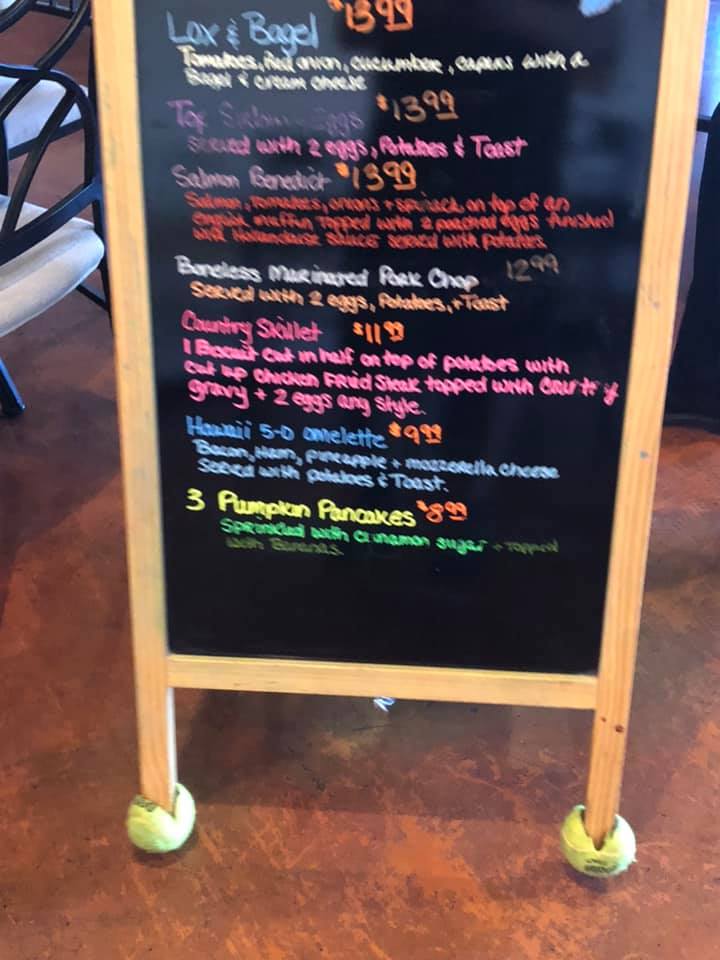 Lox & Bagel $13.99
Tomatoes, Red onion, cucumber, capers with a
Bagel & cream cheese
Top Sirloin Eggs $13.99
Served with 2 eggs, Potatoes & Toast
Salmon Benedict $13.99
Salmon, tomatoes, onions + spinach on top of an
English muffin topped with 2 poached eggs finished
with Hollandaise sauce served with potatoes
Boneless Marinared Pork Chop 12.99
Served with 2 eggs, Potatoes, + Toast
Country Skillet $11.99
1 Biscuit cut in half on top of potatoes with
cut up chicken FRied Steak topped with Country
gravy + 2 eggs any style.
Hawaii 5-0 omelette $9.99
Bacon, Ham, pineapple + mozzerella cheese
Served with potatoes & Toast.
3 Pumpkin Pancakes $8.99
Sprinkled with cinnamon sugar + Topped
with Bananas.